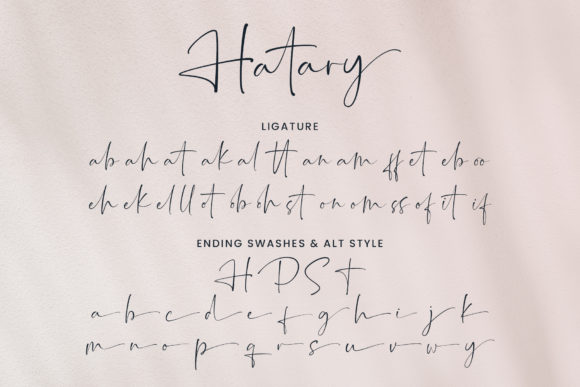 Hatary
LIGATURE
ab ah at ak al tt an am ff et eb oo
eh ek el ll ot ob oh st on om ss of it if
ENDING SWASHES & ALT STYLE
H P S t
a b c d e f g h i j k
m n o p q r s u v w y